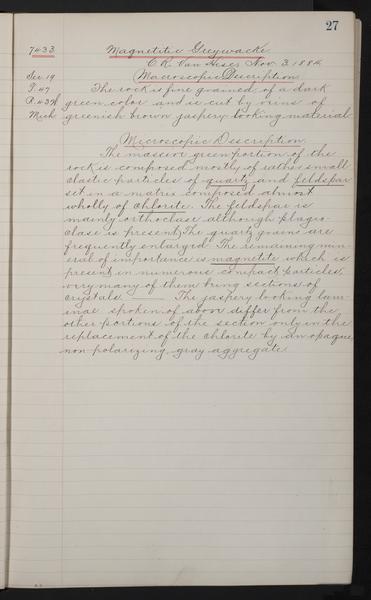 27
7433 Magnetitic Greywacke.
C.R. Van Hise, Nov. 3, 1884.
Sec. 19 Macroscopic Description.
T. 47 The rock is fine grained, of a dark
R. 43 W green color and is cut by veins of
Mich greenish brown jaspery looking material.
Microscopic Description
The massive green portion of the
rock is composed mostly of rather small
clastic particles of quartz and feldspar
set in a matrix composed almost
wholly of chlorite. The feldspar is
mainly orthoclase although plagio-
clase is present. The quartz grains are
frequently enlarged. The remaining min-
eral of importance is magnetite which is
present in numerous compact particles,
very many of them being sections of
crystals. —— The jaspery looking lam-
inae spoken of above differ from the
other portions of the section only in the
replacement of the chlorite by an opaque,
non-polarizing gray aggregate.